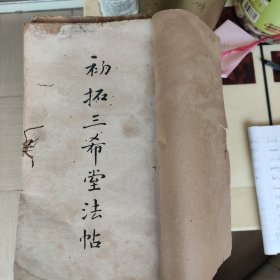 初拓三希堂法帖